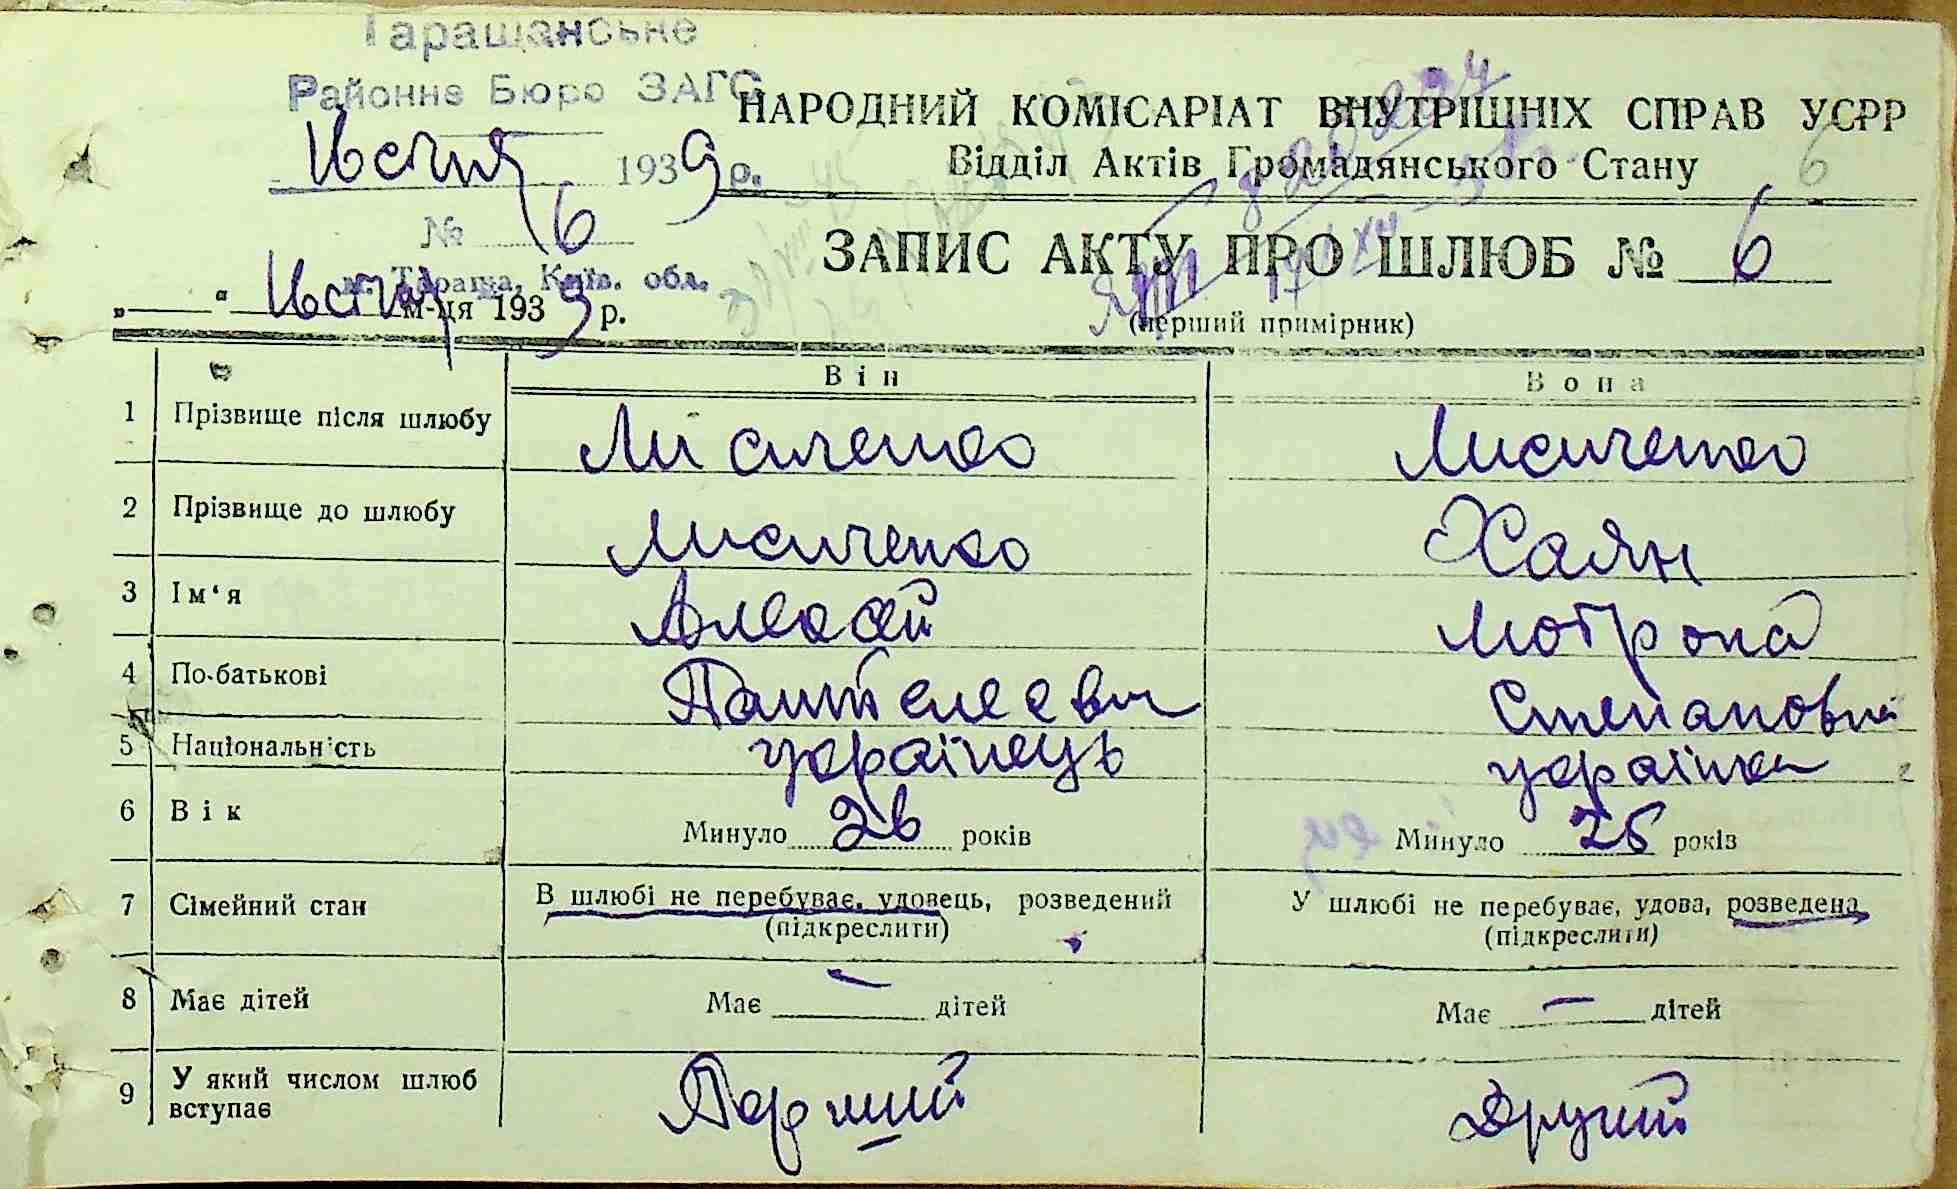 Таращанське
Районне Бюро ЗАГС
НАРОДНИЙ КОМІСАРІАТ ВНУТРІШНІХ СПРАВ УСРР
1939 р.
Відділ Актів Громадянського Стану
6
№ 6
ЗАПИС АКТУ ПРО ШЛЮБ № 6
м. Тараща, Київ. обл.
„ “ м-ця 1939 р.
(перший примірник)
Він Вона
1 Прізвище після шлюбу Лисиченко Лисиченко
2 Прізвище до шлюбу Лисиченко Хаян
3 Ім‘я Алексей Мотрона
4 По-батькові Пантелееви Степановна
5 Національність українець українка
6 Вік Минуло 26 років Минуло 25 років
7 Сімейний стан В шлюбі не перебуває, удовець, розведений У шлюбі не перебуває, удова, розведена
(підкреслити) (підкреслити)
8 Має дітей Має — дітей Має — дітей
9 У який числом шлюб вступає Перший Другий